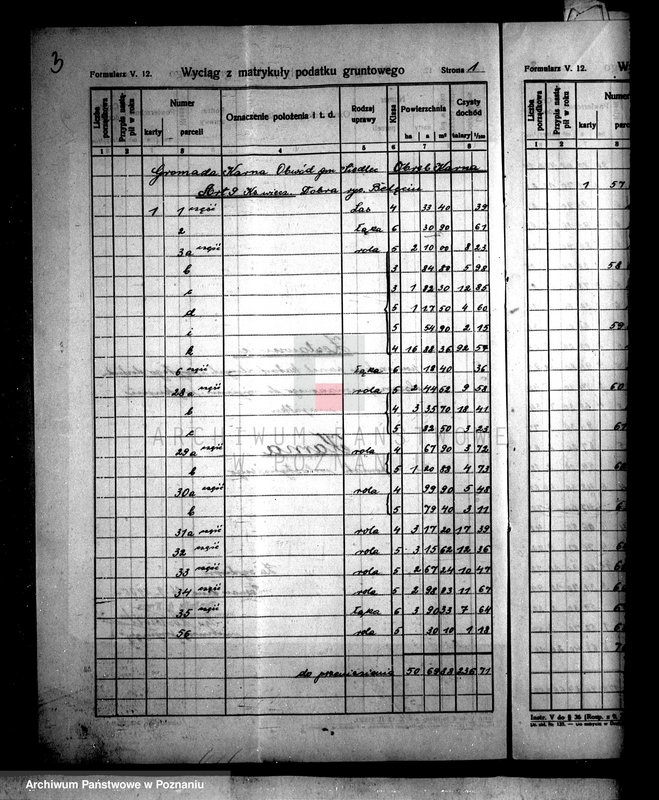 3
Formularz V. 12. Wyciąg z matrykuły podatku gruntowego Strona 1
Liczba porządkowa Przypis nastąpił w roku Numer karty parceli Oznaczenie położenia i t. d. Rodzaj uprawy Klasa Powierzchnia ha a m² Czysty dochód talary 1/100
1 2 3 4 5 6 7 8
Gromada Karna Obwód gm Siedlec Obręb Karna
Art. 9 Ks. wiecz. Dobra ryc. Bełęcin
1 1 część Las 4 33 40 39
2 Łąka 6 30 90 61
3a część rola 5 2 10 00 8 23
b 3 84 80 5 98
c 3 1 82 30 12 85
d 5 1 17 50 4 60
i 5 54 90 2 15
k 4 16 88 36 92 57
6 część Łąka 6 18 40 36
28a część rola 5 2 44 62 9 58
b 4 3 35 70 18 41
c 5 82 50 3 23
29a część rola 4 67 90 3 72
b 5 1 20 88 4 73
30a część rola 4 99 90 5 48
b 5 79 40 3 11
31a część rola 4 3 17 20 17 39
32 część rola 5 3 15 62 12 36
33 część rola 5 2 67 24 10 47
34 część rola 5 2 98 83 11 67
35 część Łąka 6 3 90 33 7 64
56 rola 5 30 10 1 18
do przeniesienia 50 69 88 236 71
ARCHIWUM PAŃSTWOWE
W POZNANIU
Formularz V. 12.
Liczba porządkowa Przypis nastąpił w roku Numer karty
1 2 3
1 57
58
59
60
61
Instr. V do § 36 (Rozp. z 9.
Archiwum Państwowe w Poznaniu